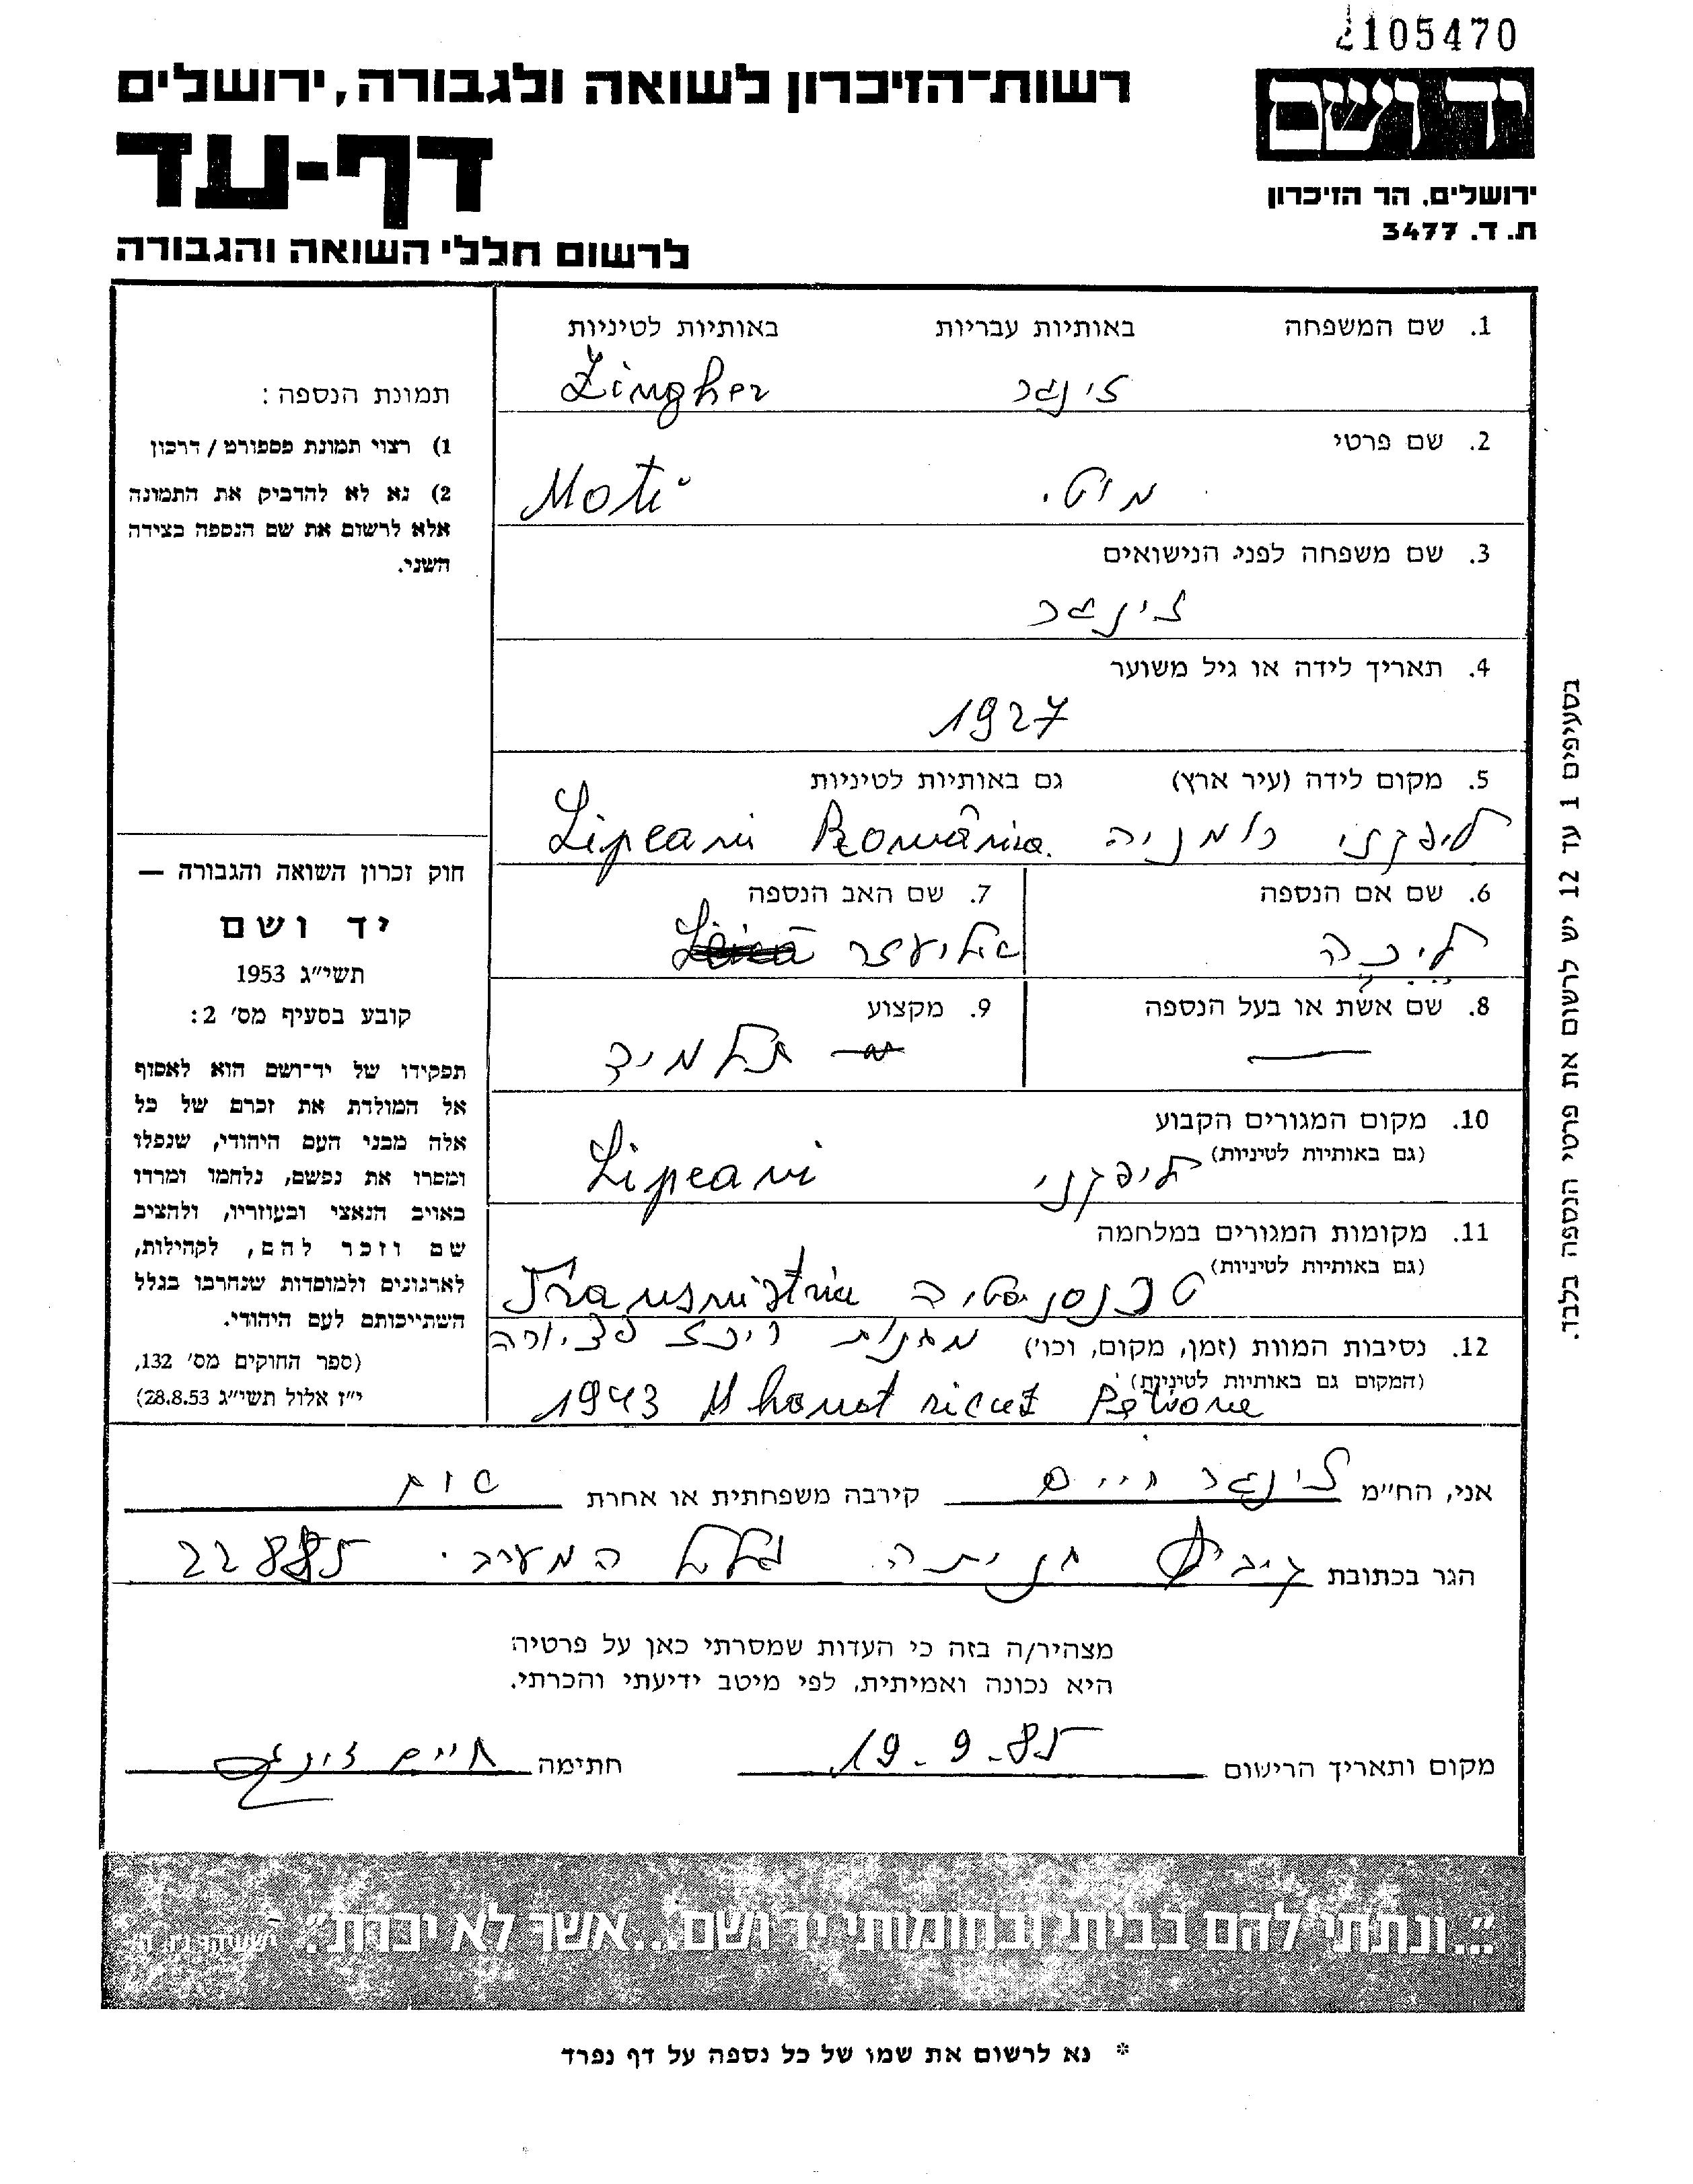 2105470
יד ושם
ירושלים, הר הזיכרון
ת. ד. 3477
רשות־הזיכרון לשואה ולגבורה, ירושלים
דף-עד
לרשום חללי השואה והגבורה
1. שם המשפחה באותיות עבריות באותיות לטיניות
זינגר Zingher
2. שם פרטי
מוטי Moti
3. שם משפחה לפני הנישואים
זינגר
4. תאריך לידה או גיל משוער
1927
5. מקום לידה (עיר ארץ) גם באותיות לטיניות
ליפקני רומניה Lipcani România
6. שם אם הנספה
7. שם האב הנספה
אליעזר
8. שם אשת או בעל הנספה
—
9. מקצוע
תלמיד
10. מקום המגורים הקבוע
(גם באותיות לטיניות)
ליפקני Lipcani
11. מקומות המגורים במלחמה
(גם באותיות לטיניות)
Transnistria
12. נסיבות המוות (זמן, מקום, וכו')
(המקום גם באותיות לטיניות)
מחנות ריכוז
1943
תמונת הנספה:
1) רצוי תמונת פספורט / דרכון
2) נא לא להדביק את התמונה
אלא לרשום את שם הנספה בצידה
השני.
חוק זכרון השואה והגבורה —
יד ושם
תשי"ג 1953
קובע בסעיף מס' 2:
תפקידו של יד־ושם הוא לאסוף
אל המולדת את זכרם של כל
אלה מבני העם היהודי, שנפלו
ומסרו את נפשם, נלחמו ומרדו
באויב הנאצי ובעוזריו, ולהציב
שם וזכר להם, לקהילות,
לארגונים ולמוסדות שנחרבו בגלל
השתייכותם לעם היהודי.
(ספר החוקים מס' 132,
י"ז אלול תשי"ג 28.8.53)
בסעיפים 1 עד 12 יש לרשום את פרטי הנספה בלבד.
אני, הח"מ זינגר חיים קירבה משפחתית או אחרת אח
הגר בכתובת קיבוץ חניתה גליל המערבי 22885
מצהיר/ה בזה כי העדות שמסרתי כאן על פרטיה
היא נכונה ואמיתית, לפי מיטב ידיעתי והכרתי.
מקום ותאריך הרישום 19-9-85 חתימה חיים זינגר
"...ונתתי להם בביתי ובחומותי יד ושם...אשר לא יכרת". ישעיהו נו, ה'
* נא לרשום את שמו של כל נספה על דף נפרד